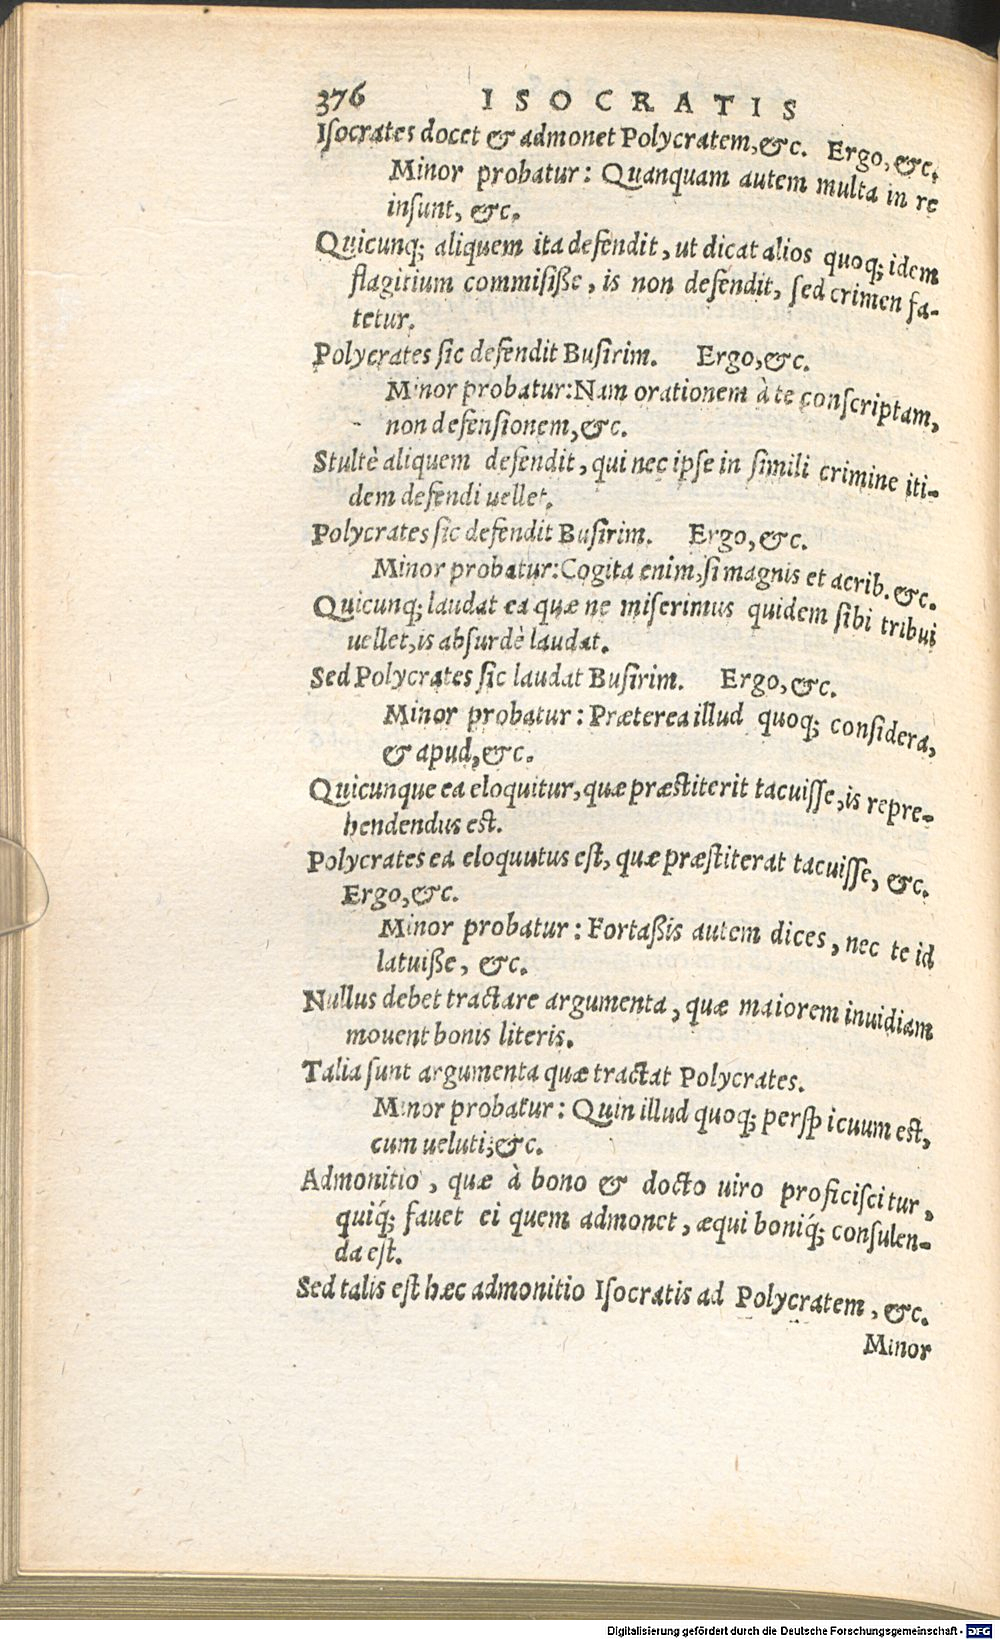 376 ISOCRATIS
Iſocrates docet & admonet Polycratem,&c. Ergo,&c.
Minor probatur: Quanquam autem multa in re
inſunt, &c.
Quicunq; aliquem ita defendit, ut dicat alios quoq; idem
flagitium commiſiße, is non defendit, ſed crimen fa-
tetur.
Polycrates ſic defendit Buſirim. Ergo,&c.
Minor probatur:Nam orationem à te conſcriptam,
non defenſionem,&c.
Stultè aliquem defendit, qui nec ipſe in ſimili crimine iti-
dem defendi uellet.
Polycrates ſic defendit Buſirim. Ergo,&c.
Minor probatur:Cogita enim,ſi magnis et acrib. &c.
Quicunq; laudat ea quæ ne miſerimus quidem ſibi tribui
uellet,is abſurdè laudat.
Sed Polycrates ſic laudat Buſirim. Ergo,&c.
Minor probatur: Præterea illud quoq; conſidera,
& apud,&c.
Quicunque ea eloquitur,quæ præſtiterit tacuiſſe,is repre-
hendendus eſt.
Polycrates ea eloquutus eſt, quæ præſtiterat tacuiſſe, &c.
Ergo,&c.
Minor probatur: Fortaßis autem dices, nec te id
latuiße, &c.
Nullus debet tractare argumenta, quæ maiorem inuidiam
mouent bonis literis.
Talia ſunt argumenta quæ tractat Polycrates.
Minor probatur: Quin illud quoq; perſpicuum eſt,
cum ueluti,&c.
Admonitio, quæ à bono & docto uiro proficiſcitur,
quiq́; fauet ei quem admonet, æqui boniq́; conſulen-
da eſt.
Sed talis eſt hæc admonitio Iſocratis ad Polycratem, &c.
Minor
Digitalisierung gefördert durch die Deutsche Forschungsgemeinschaft - DFG